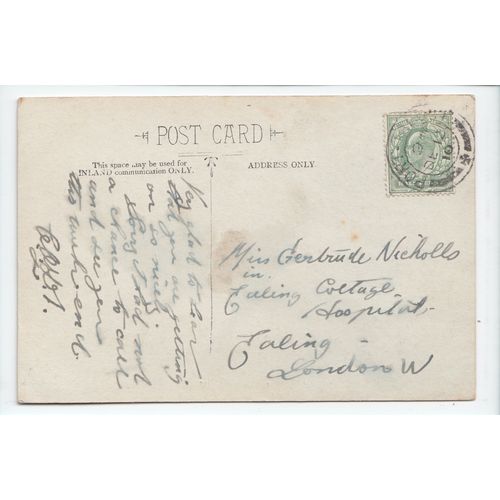 POST CARD
This space may be used for
INLAND communication ONLY.
ADDRESS ONLY.
Very glad to hear
that you are getting
on so nicely.
Sorry I had not
a chance to call
and see you
this weekend.
Miss Gertrude Nicholls
in
Ealing Cottage
Hospital
Ealing
London W